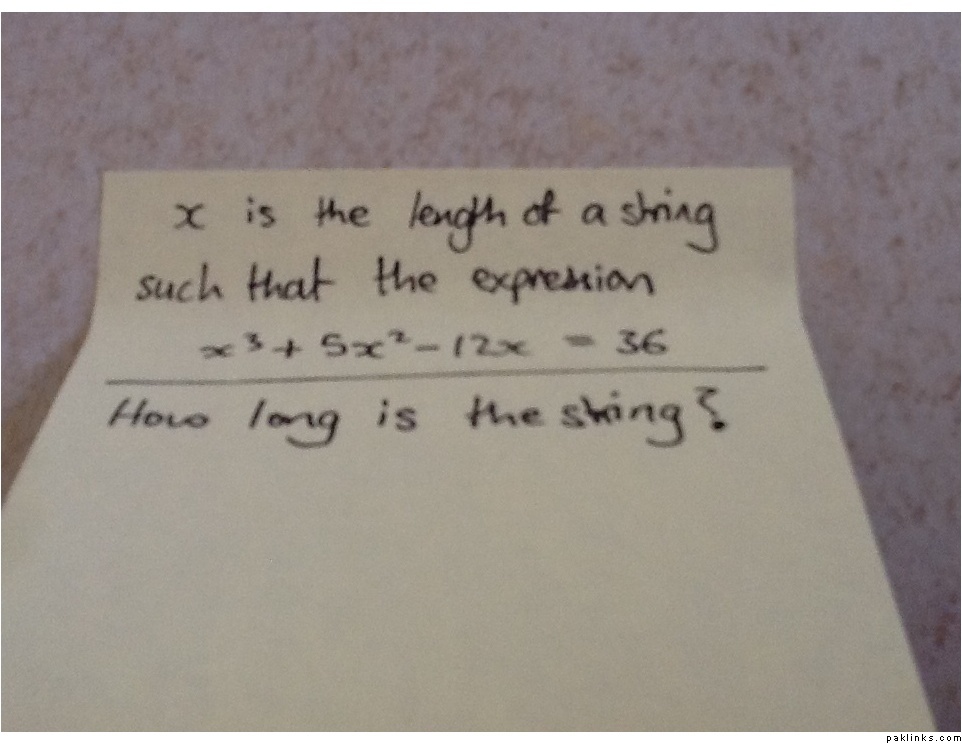 x is the length of a string
such that the expression
x³ + 5x² - 12x = 36
How long is the string?
paklinks.com